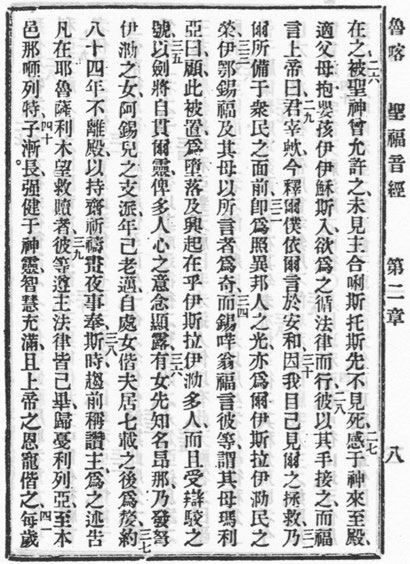 魯喀 聖福音經 第二章 八
在之二六被聖神曾允許之、未見主合唎斯托斯、先不見死、二七感于神來至殿、
適父母抱嬰孩伊伊穌斯入、欲爲之循法律而行、二八彼以其手接之、而福
言上帝曰、二九君宰歟、今釋爾僕、依爾言於安和、三十因我目己見爾之拯救、三一乃
爾所備于衆民之面前、三二卽爲照異邦人之光、亦爲爾伊斯拉伊泐民之
榮、三三伊鄂錫福及其母、以所言者爲奇、三四而錫哶翁福言彼等、謂其母瑪利
亞曰、顧此被置、爲墮落及興起、在乎伊斯拉伊泐多人、而且受辯駁之
號、三五以劍將自貫爾靈、俾多人心之意念顯露、三六有女先知名昂那、乃發努
伊泐之女、阿錫兒之支派、年已老邁、自處女偕夫居七載之後、三七爲嫠約
八十四年、不離殿、以持齋祈禱、晝夜事奉、三八斯時趨前、稱讚主、爲之述告
凡在耶魯薩利木望救贖者、三九彼等遵主法律皆已畢、歸戞利列亞、至本
邑那咂列特、四十子漸長、强健于神靈、智慧充滿、且上帝之恩寵偕之、四一每歲